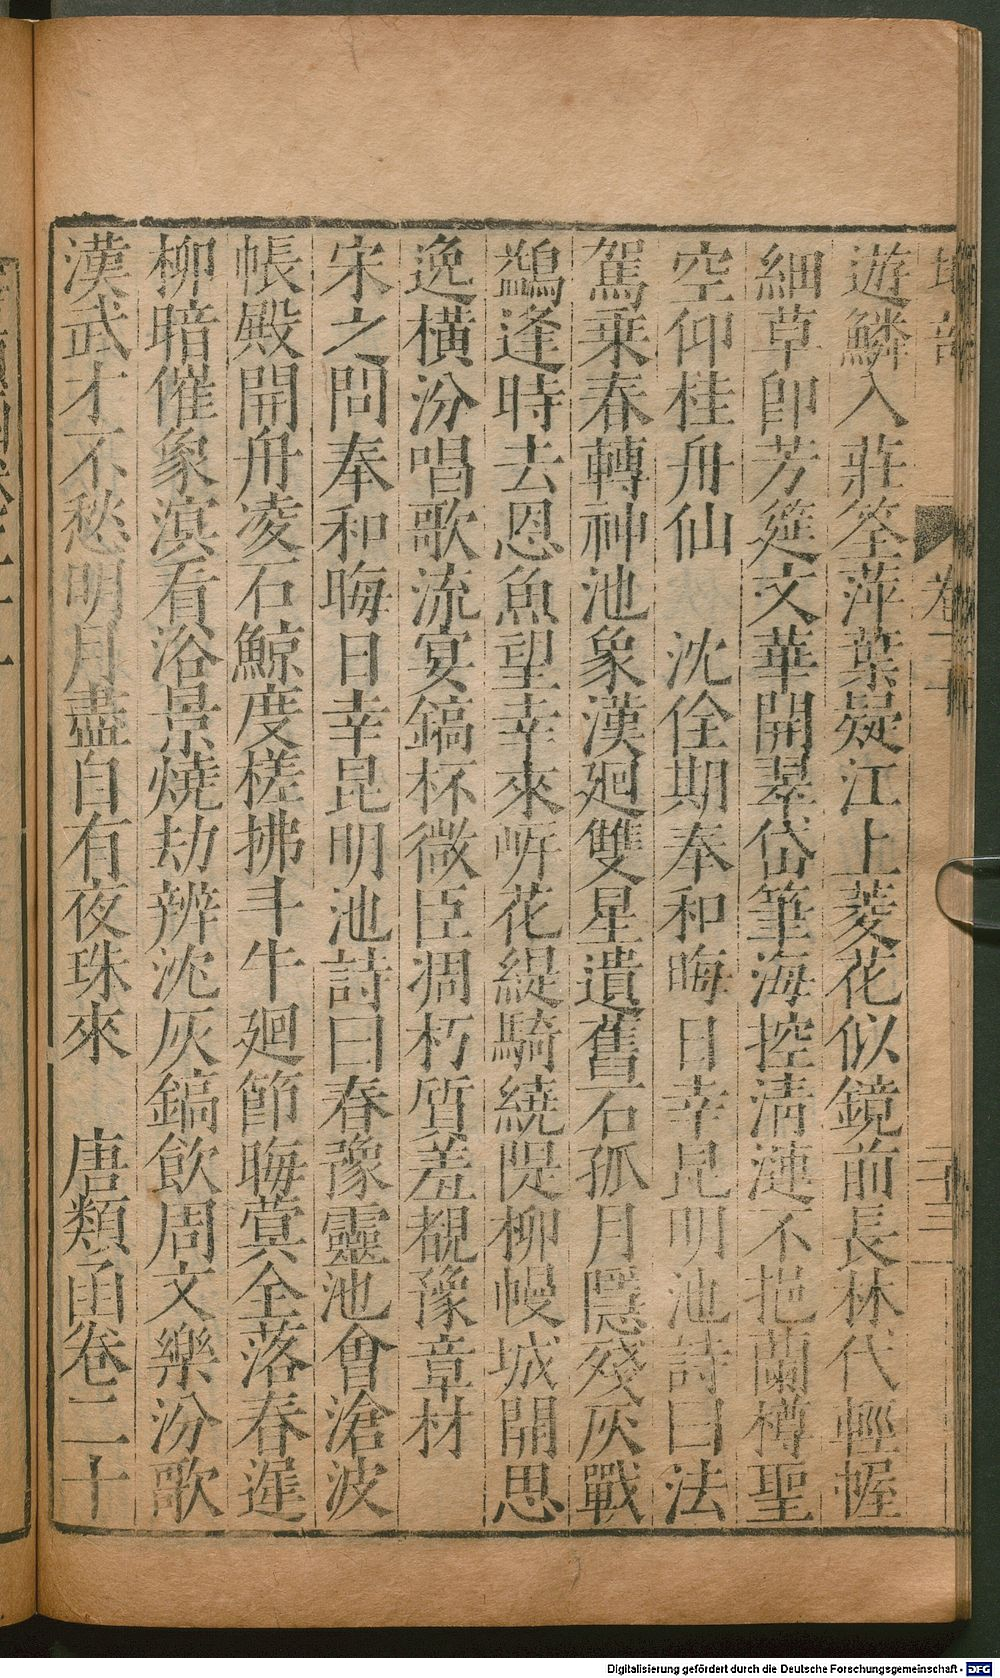 遊鱗入莊筌萍葉疑江上菱花似鏡前長林代輕幄
細草即芳筵文華開翠岱筆海控淸漣不挹蘭樽聖
空仰桂舟仙　沈佺期奉和晦日幸昆明池詩曰法
駕乗春轉神池象漢廻雙星遺舊石孤月隱殘灰戰
鷁逢時去恩魚望幸來岍花緹騎繞隄柳幔城開思
逸橫汾唱歌流宴鎬杯微臣凋朽質羞覩豫章材
宋之問奉和晦日幸昆明池詩曰春豫靈池會滄波
帳殿開舟凌石鯨度槎拂斗牛廻節晦蓂全落春遲
柳暗催象溟看浴景燒劫辨沈灰鎬飮周文樂汾歌
漢武才不愁明月盡自有夜珠來　唐類函卷二十
卷二十
二十三
Digitalisierung gefördert durch die Deutsche Forschungsgemeinschaft - DFG